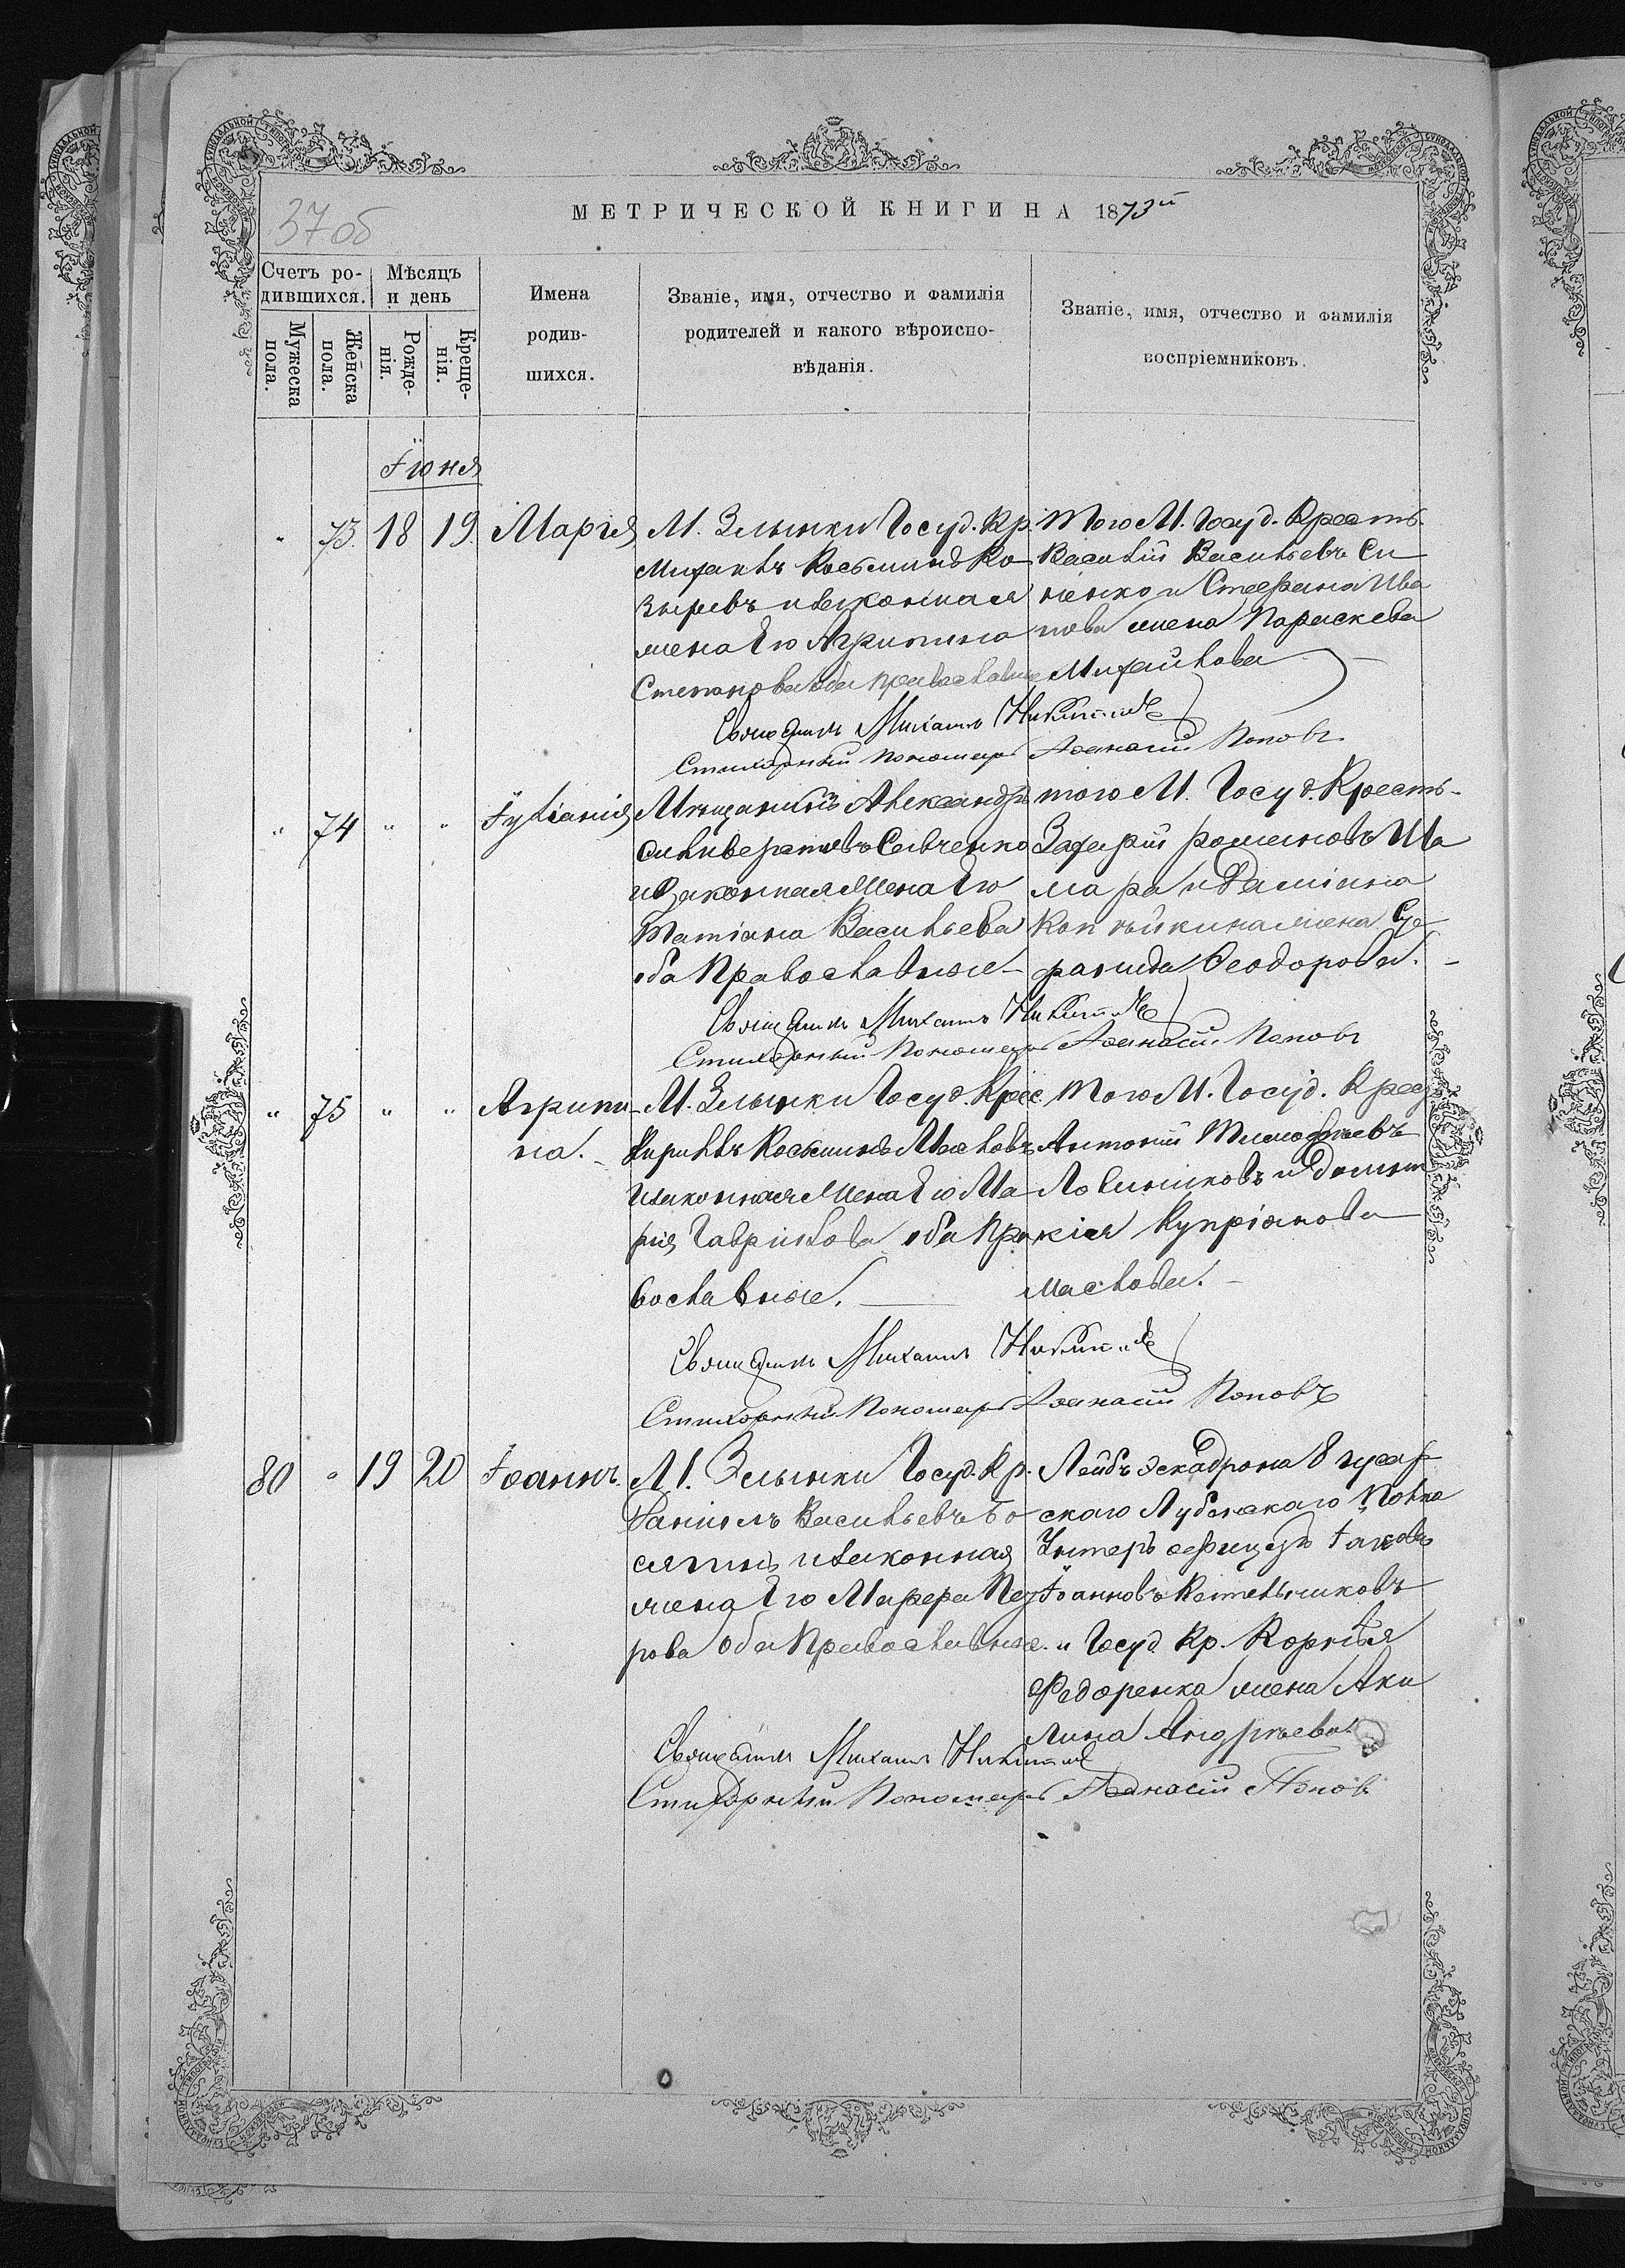 37 об
МЕТРИЧЕСКОЙ КНИГИ НА 1873й
Счетъ ро-
дившихся.
Мѣсяцъ
и день
Мужеска
пола.
Женска
пола.
Рожде-
нія.
Креще-
нія.
Имена
родив-
шихся.
Званіе, имя, отчество и фамилія
родителей и какого вѣроиспо-
вѣданія.
Званіе, имя, отчество и фамилія
воспріемниковъ.
Іюня
" 73. 18 19. Марія
М. Злынки Госуд. Кр.
Михаилъ Косьминъ Ко-
зыревъ и законная
жена Его Агрипина
Степанова оба православные
Того М. Госуд. Кресть.
Василій Васильевъ Си-
ненко и Стефана Ива
нова жена Параскева
Михайлова
Священникъ Михаилъ Никитинъ
Стихарный Пономарь Аѳанасій Поповъ
" 74 " " Іуліанія
Мѣщанинъ Александръ
Селивератовъ Савченко
и Законная Жена Его
Татіана Васильева
оба Православные
того М. Госуд. Кресть-
Захарій
мара и Даміана
Копѣйкина жена
Феодорова.
Священникъ Михаилъ Никитинъ
Стихарный Пономарь Аѳанасій Поповъ
" 75 " " Агрипи-
на.
М. Злынки Госуд. Крес.
Кирилъ Косьминъ Масловъ
и законная Жена Его Ма-
рія Гаврилова оба Пра
вославные.
Того М. Госуд. Крес
Антоній Тимофѣевъ
Логвиниковъ и Домни
кія Купріанова
Маслова.
Священникъ Михаилъ Никитинъ
Стихарный Пономарь Аѳанасій Поповъ
80 " 19 20 Іоаннъ.
М. Злынки Госуд. Кр.
Даніилъ Васильевъ Бо-
и законная
жена Его Марфа Пет
рова оба Православные.
Лейбъ эскадрона 8 гусар
скаго Лубенскаго Полка
Унтеръ офицеръ Іаковъ
Іоанновъ Котельниковъ
и Госуд. Кр. Корнілія
Федоренка жена Аки
лина Андреева.
Священникъ Михаилъ Никитинъ
Стихарный Пономарь Аѳанасій Поповъ